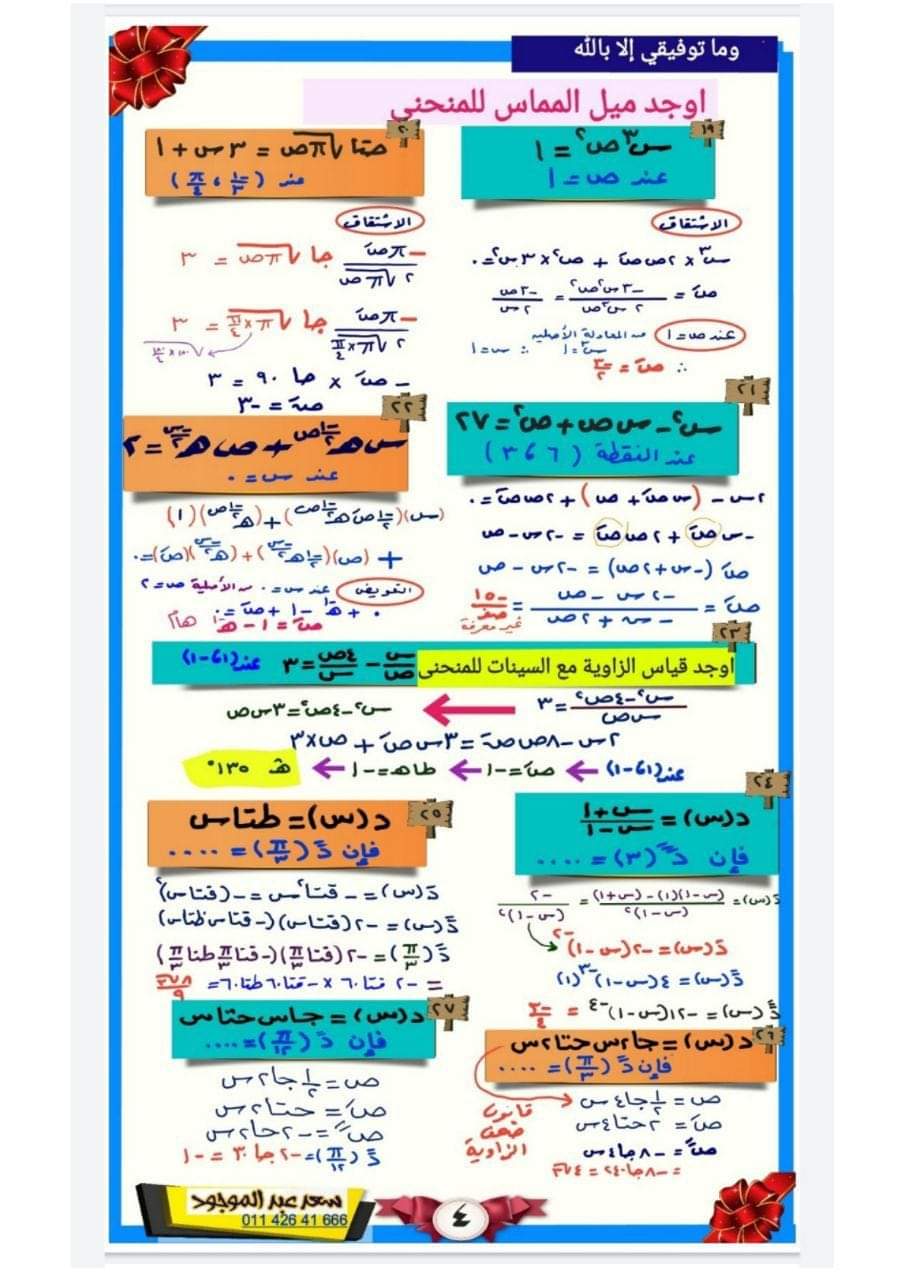 وما توفيقي إلا بالله
اوجد ميل المماس للمنحنى
١٩
س٣ ص٢ = ١
عند ص = ١
الاشتقاق
س٣ × ٢ص صَ + ص٢ × ٣س٢ = ٠
صَ = -٣س٢ص٢ / ٢س٣ص = -٣ص / ٢س
عند ص = ١ من المعادلة الأصلية
س٣ = ١ ∴ س = ١
∴ صَ = -٣/٢
٢٠
حتا √πص = ٣س + ١
عند (-١/٣ ، π/٤)
الاشتقاق
-πصَ / ٢√πص جا √πص = ٣
-πصَ / ٢√π×π/٤ جا √π×π/٤ = ٣
- صَ × جا ٩٠ = ٣
صَ = -٣
٢١
س٢ - س ص + ص٢ = ٢٧
عند النقطة (٦ ، ٣)
٢س - (س صَ + ص) + ٢ص صَ = ٠
-س صَ + ٢ص صَ = -٢س - ص
صَ (-س + ٢ص) = -٢س - ص
صَ = -٢س - ص / -س + ٢ص = -١٥ / صفر
غير معرفة
٢٢
س هـ^(-١/٢ ص) + ص هـ^(-س/٢) = ٢
عند س = ٠
(س)(-١/٢ صَ هـ^(-١/٢ ص)) + (هـ^(-١/٢ ص))(١)
+ (ص)(-١/٢ هـ^(-س/٢)) + (هـ^(-س/٢))(صَ) = ٠
التعويض عند س = ٠ من الأصلية ص = ٢
٠ + هـ-١ - ١ + صَ = ٠
صَ = ١ - هـ-١ هام
٢٣
اوجد قياس الزاوية مع السينات للمنحنى س/ص - ٤ص/س = ٣ عند (١-،١)
س٢ - ٤ص٢ / س ص = ٣ ← س٢ - ٤ص٢ = ٣س ص
٢س - ٨ص صَ = ٣س صَ + ص × ٣
عند (١-،١) ← صَ = -١ ← طاهـ = -١ ← هـ ١٣٥°
٢٤
د(س) = س+١ / س-١
فإن دَََ(٣) = ....
دَ(س) = (س-١)(١) - (س+١) / (س-١)٢ = -٢ / (س-١)٢
دَ(س) = -٢(س-١)-٢
دََ(س) = ٤(س-١)-٣(١)
دَََ(س) = -١٢(س-١)-٤ = -٣/٤
٢٥
د(س) = طتا س
فإن دََ(π/٣) = ....
دَ(س) = -قتا٢س = -(قتاس)٢
دََ(س) = -٢(قتاس)(-قتاس ظتاس)
دََ(π/٣) = -٢(قتا π/٣)(-قتا π/٣ طتا π/٣)
= -٢ قتا ٦٠ × -قتا ٦٠ طتا ٦٠ = ٨√٣ / ٩
٢٦
د(س) = جا٢س حتا٢س
فإن دََ(π/٣) = ....
ص = ١/٢ جا٤س
صَ = ٢حتا٤س
صََ = -٨جا٤س
= -٨جا٢٤٠ = ٤√٣
قانون
ضعف
الزاوية
٢٧
د(س) = جاس حتاس
فإن دََ(π/١٢) = ....
ص = ١/٢ جا٢س
صَ = حتا٢س
صََ = -٢جا٢س
دََ(π/١٢) = -٢جا٣٠ = -١
سعد عبد الموجود
011 426 41 666
٤